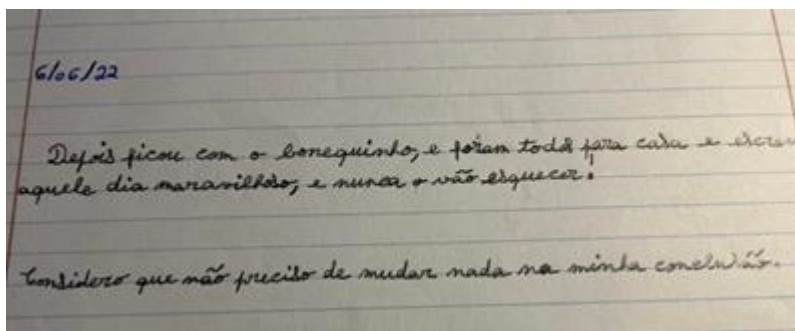 6/06/22
Depois ficou com o bonequinho, e foram todos para casa e
aquele dia maravilhoso, e nunca o vão esquecer!
Considero que não preciso de mudar nada na minha conclusão.